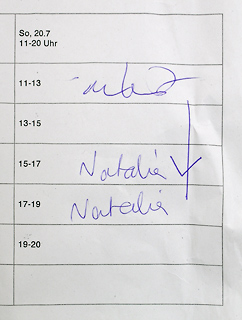 So, 20.7
11-20 Uhr
11-13
13-15
15-17 Natalie
17-19 Natalie
19-20